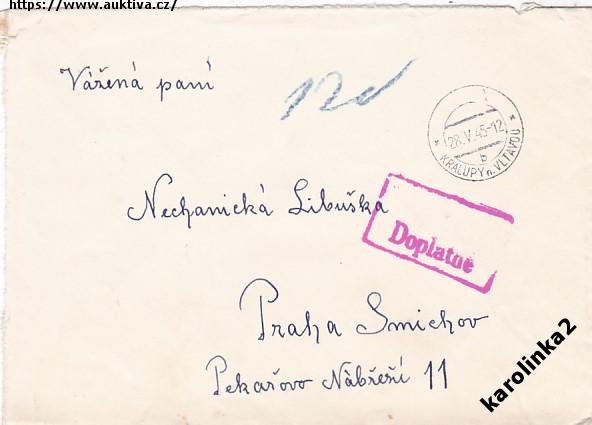 https://www.auktiva.cz/
Vážená paní
12d
28.V.45-12
b
* KRALUPY n. VLTAVOU *
Nechanická Libuška
Doplatné
Praha Smichov
Pekařovo Nábřeží 11
karolinka2